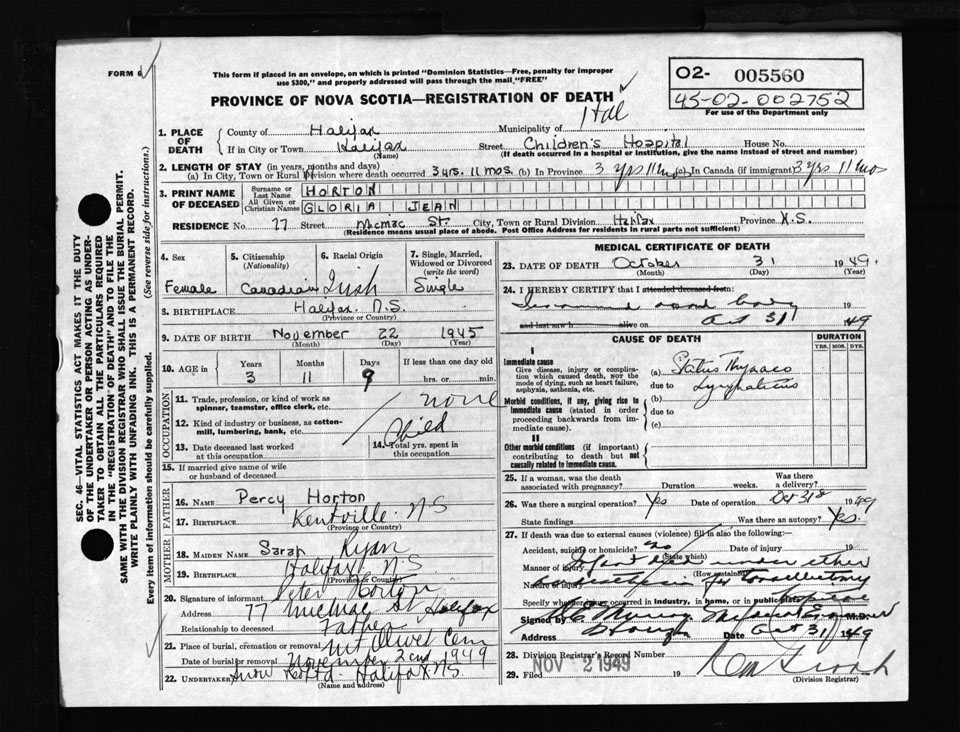 FORM 6
This form if placed in an envelope, on which is printed "Dominion Statistics—Free, penalty for improper
use $300," and properly addressed will pass through the mail "FREE"
PROVINCE OF NOVA SCOTIA—REGISTRATION OF DEATH
02- 005560
45-02-002752
For use of the Department only
Hal
1. PLACE OF DEATH
County of Halifax Municipality of
If in City or Town Halifax Street Children's Hospital House No.
(Name) (If death occurred in a hospital or institution, give the name instead of street and number)
2. LENGTH OF STAY (in years, months and days)
(a) In City, Town or Rural Division where death occurred 3 yrs. 11 mos. (b) In Province 3 yrs 11 mo (c) In Canada (if immigrant) 3 yrs 11 mos
3. PRINT NAME OF DECEASED
Surname or Last Name HORTON
All Given or Christian Names GLORIA JEAN
RESIDENCE No. 77 Street Micmac St. City, Town or Rural Division Halifax Province N.S.
(Residence means usual place of abode. Post Office Address for residents in rural parts not sufficient)
4. Sex
Female
5. Citizenship
(Nationality)
Canadian
6. Racial Origin
Irish
7. Single, Married,
Widowed or Divorced
(write the word)
Single
8. BIRTHPLACE Halifax N.S.
(Province or Country)
9. DATE OF BIRTH November 22 1945
(Month) (Day) (Year)
10. AGE in Years Months Days If less than one day old
3 11 9 hrs. or min.
OCCUPATION
11. Trade, profession, or kind of work as
spinner, teamster, office clerk, etc. none
12. Kind of industry or business, as cotton-
mill, lumbering, bank, etc. Child
13. Date deceased last worked
at this occupation
14. Total yrs. spent in
this occupation
15. If married give name of wife
or husband of deceased
FATHER
16. NAME Percy Horton
17. BIRTHPLACE Kentville N S
(Province or Country)
MOTHER
18. MAIDEN NAME Sarah Ryan
19. BIRTHPLACE Halifax N.S.
(Province or Country)
20. Signature of informant Peter Horton
Address 77 Micmac St Halifax
Relationship to deceased Father
21. Place of burial, cremation or removal Mt Olivet Cem
Date of burial or removal November 2nd 1949
22. UNDERTAKER Snow Co Ltd. Halifax N S.
(Name and address)
MEDICAL CERTIFICATE OF DEATH
23. DATE OF DEATH October 31 1949.
(Month) (Day) (Year)
24. I HEREBY CERTIFY that I attended deceased from:
body 19
and last saw h alive on Oct 31 1949
CAUSE OF DEATH
DURATION
YRS. MOS. DYS.
I
Immediate cause
Give disease, injury or complica-
tion which caused death, not the
mode of dying, such as heart failure,
asphyxia, asthenia, etc.
(a) Status Thymaco
due to Lymphaticus
Morbid conditions, if any, giving rise to
immediate cause (stated in order
proceeding backwards from im-
mediate cause).
(b)
due to
(c)
II
Other morbid conditions (if important)
contributing to death but not
causally related to immediate cause.
25. If a woman, was the death
associated with pregnancy? Duration weeks. Was there
a delivery?
26. Was there a surgical operation? Yes Date of operation Oct 31st 1949
State findings Was there an autopsy? Yes.
27. If death was due to external causes (violence) fill in also the following:
Accident, suicide or homicide? no Date of injury 19
(State which)
Manner of injury Infant died under ether
(How sustained)
Nature of injury anaesthesia for tonsillectomy
Specify whether injury occurred in industry, in home, or in public place
Signed by M.D.
Address Date Oct 31 1949
28. Division Registrar's Record Number
29. Filed NOV 2 1949 19
(Division Registrar)
SEC. 46—VITAL STATISTICS ACT MAKES IT THE DUTY
OF THE UNDERTAKER OR PERSON ACTING AS UNDER-
TAKER TO OBTAIN ALL THE PARTICULARS REQUIRED
IN THE "REGISTRATION OF DEATH" AND TO FILE THE
SAME WITH THE DIVISION REGISTRAR WHO SHALL ISSUE THE BURIAL PERMIT.
WRITE PLAINLY WITH UNFADING INK. THIS IS A PERMANENT RECORD.
Every item of information should be carefully supplied. (See reverse side for instructions.)